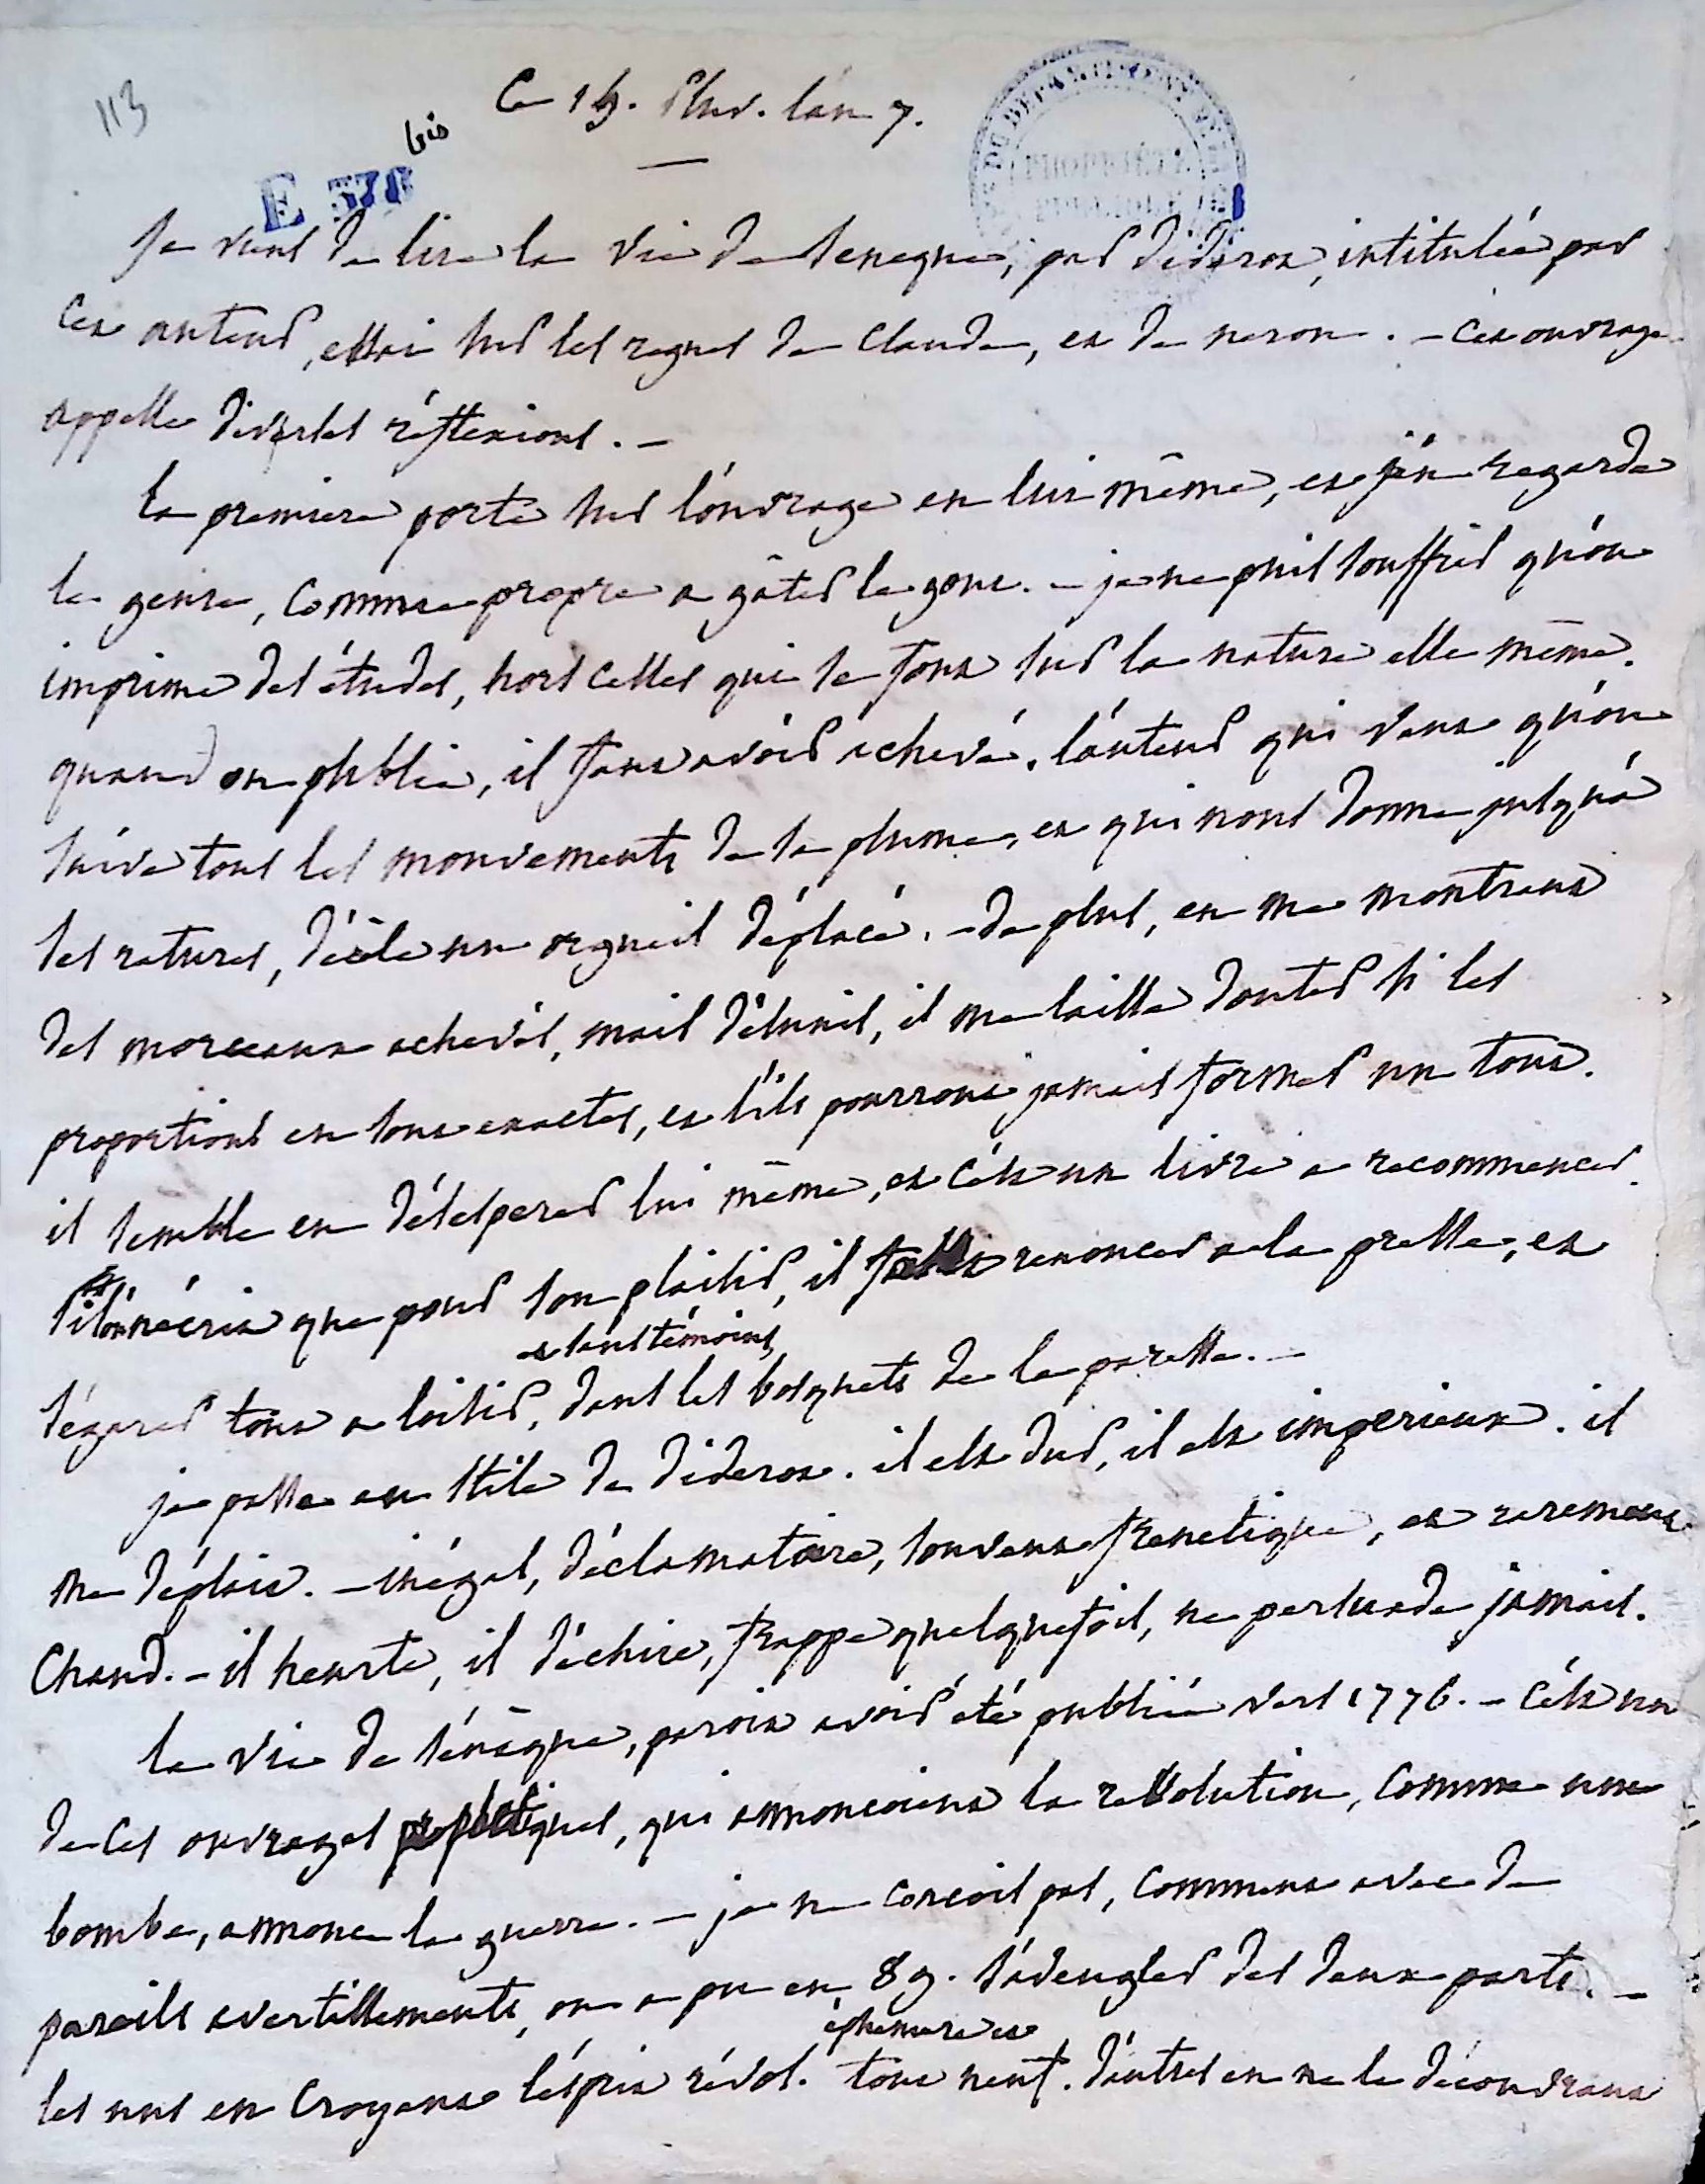 113
Ce 15. Pluv. l'an 7.
bis
E 378
PROPRIÉTÉ PUBLIQUE
Je viens de lire la vie de Seneque, par diderot, intitulée par
cet auteur, essai sur les regnes de Claude, et de neron. - Cet ouvrage
appelle diverses réflexions. -
la premiere porte sur l'ouvrage en lui même, et j'en regarde
le genre, comme propre a gâter le gout. - je ne puis souffrir qu'on
imprime des études, hors celles qui se font sur la nature elle même.
quand on publie, il faut avoir achevé. l'auteur qui veut qu'on
suive tous les mouvements de sa plume, et qui nous donne jusqu'à
ses ratures, décèle un orgueil déplacé. - de plus, en me montrant
des morceaux achevés, mais désunis, il me laisse douter si les
proportions en sont exactes, et s'ils pourront jamais former un tout.
il semble en désesperer lui même, et c'est un livre a recommencer.
si l'on n'écrit que pour son plaisir, il faut renoncer a la presse, et
et sans témoins,
s'égarer tout a loisir, dans les bosquets de la paresse. -
je passe au stile de diderot. il est dur, il est imperieux. il
me déplait. - inégal, déclamatoire, souvent frenetique, et rarement
chaud. - il heurte, il déchire, frappe quelquefois, ne persuade jamais.
la vie de sénèque, paroit avoir été publiée vers 1776. - c'est un
de ces ouvrages, qui annoncoient la revolution, comme une
bombe, annonce la guerre. - je ne concois pas, comment avec de
pareils avertissements, on a pu en 89. s'aveugler des deux parts. -
éphemere et
les uns en croyant l'esprit révol. tout neuf. d'autres en ne le découvrant